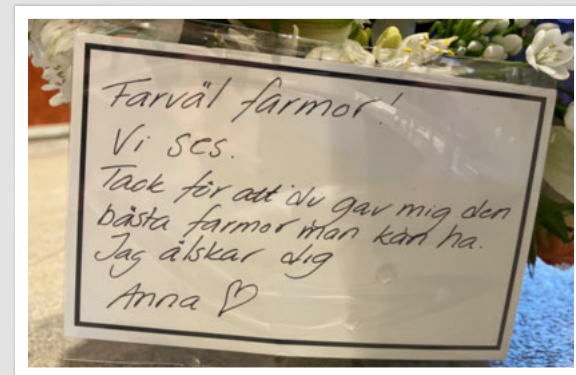 Farväl farmor!
Vi ses.
Tack för att du gav mig den
bästa farmor man kan ha.
Jag älskar dig
Anna ♡